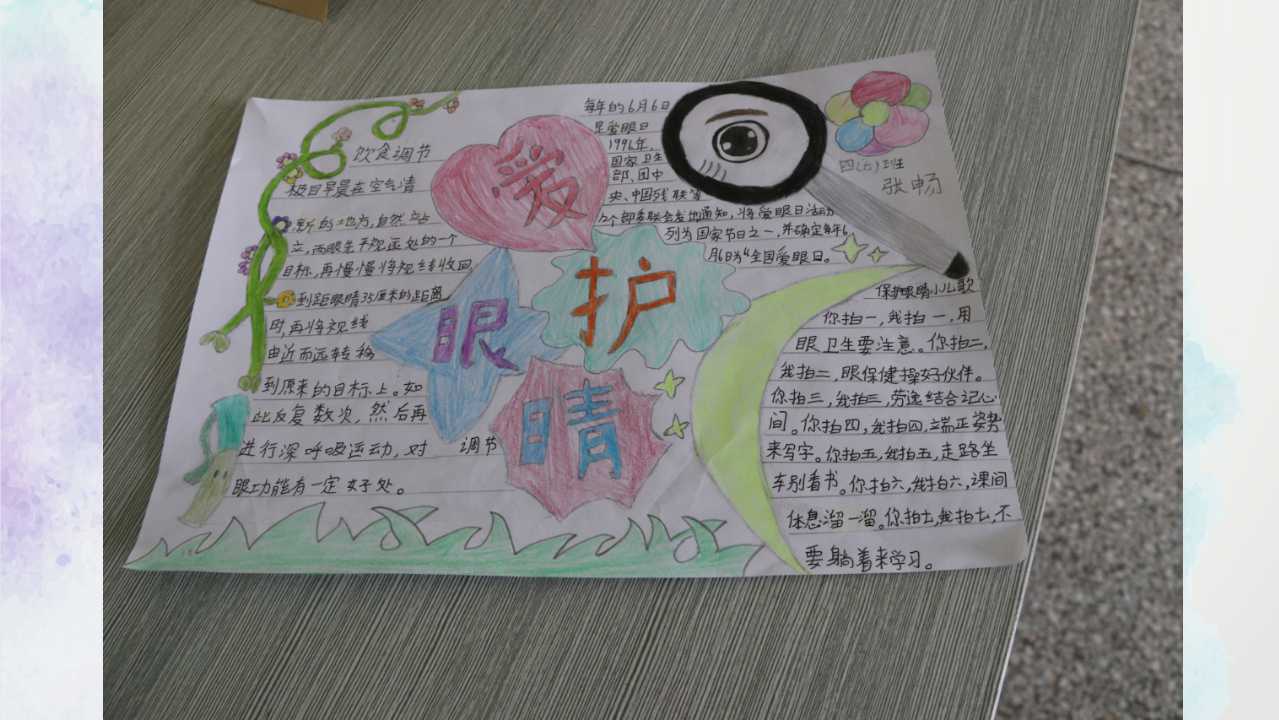 爱
护
眼
睛
饮食调节
极目早晨在空气清
新的地方,自然站
立,两眼先平视远处的一个
目标,再慢慢将视线收回,
到距眼睛35厘米的距离
时再将视线
由近而远转移
到原来的目标上。如
此反复数次,然后再
进行深呼吸运动,对 调节
眼功能有一定好处。
每年的6月6日
是爱眼日
1996年,
国家卫生
部、团中
央、中国残联等
12个部委联合发出通知,将爱眼日活动
列为国家节日之一,并确定每年6
月6日为“全国爱眼日。
四(六)班
张畅
保护眼睛小儿歌
你拍一,我拍一,用
眼卫生要注意。你拍二,
我拍二,眼保健操好伙伴。
你拍三,我拍三,劳逸结合记心
间。你拍四,我拍四,端正姿势
来写字。你拍五,我拍五,走路坐
车别看书。你拍六,我拍六,课间
休息溜一溜。你拍七,我拍七,不
要躺着来学习。